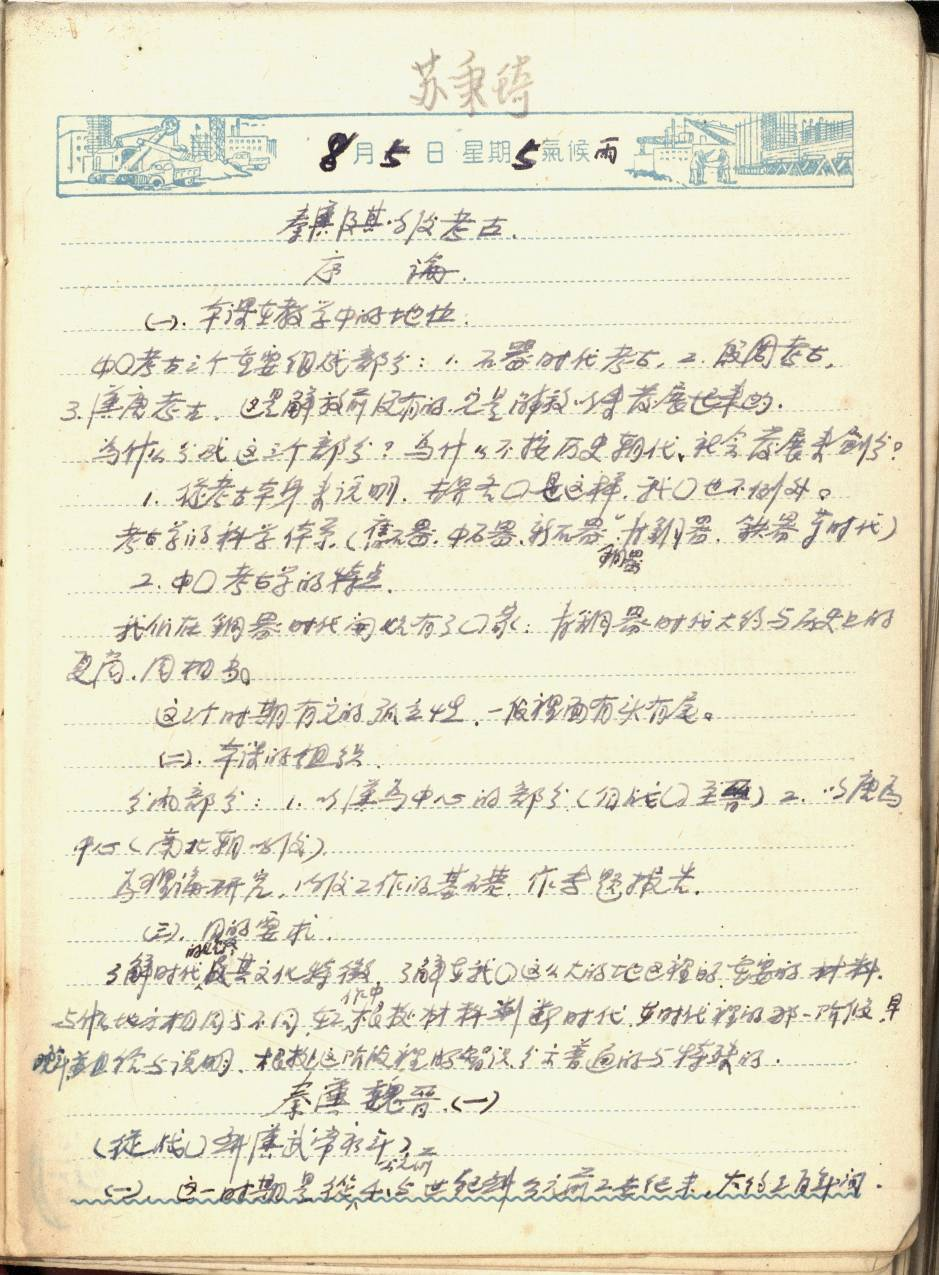 苏秉琦
8月5日 星期5 氣候雨
秦漢及其以后考古.
序 論.
(一). 本课在教学中的地位.
中〇考古三个重要组成部分: 1. 石器时代考古, 2. 殷周考古,
3. 漢唐考古. 这是解放前没有的. 它是解放以来发展起来的.
为什么分成这三个部分? 为什么不按历史朝代、社会发展来划分?
1. 從考古本身来说明. 世界各〇是这样. 我〇也不例外。
考古学的科学体系. (舊石器. 中石器. 新石器 銅器 青銅器. 鉄器等时代)
2. 中〇考古学的特点.
我们在銅器时代间也有了〇家: 青銅器时代大约与历史上的
夏商. 周相当。
这三个时期有它的孤立性. 一段裡面有头有尾。
(二). 本课的组织.
分两部分: 1. 以漢为中心的部分 (自战〇至晋) 2. 以唐为
中心 (南北朝以后).
为理論研究, 以后工作的基础 作专题报告.
(三). 目的要求.
了解时代的起及其文化特徵, 了解在我〇这么大的地区裡的重要的材料.
与什么地方相同与不同 工作中根据材料判断时代, 如时代裡的那一阶段, 早
晚 并且给与说明. 根据这阶段裡的智识分出普通的与特殊的.
秦漢魏晋. (一)
(從战〇到漢武帝初年)
(一). 这一时期是從公元前五世纪到公元前二世纪末, 大约三百年间.